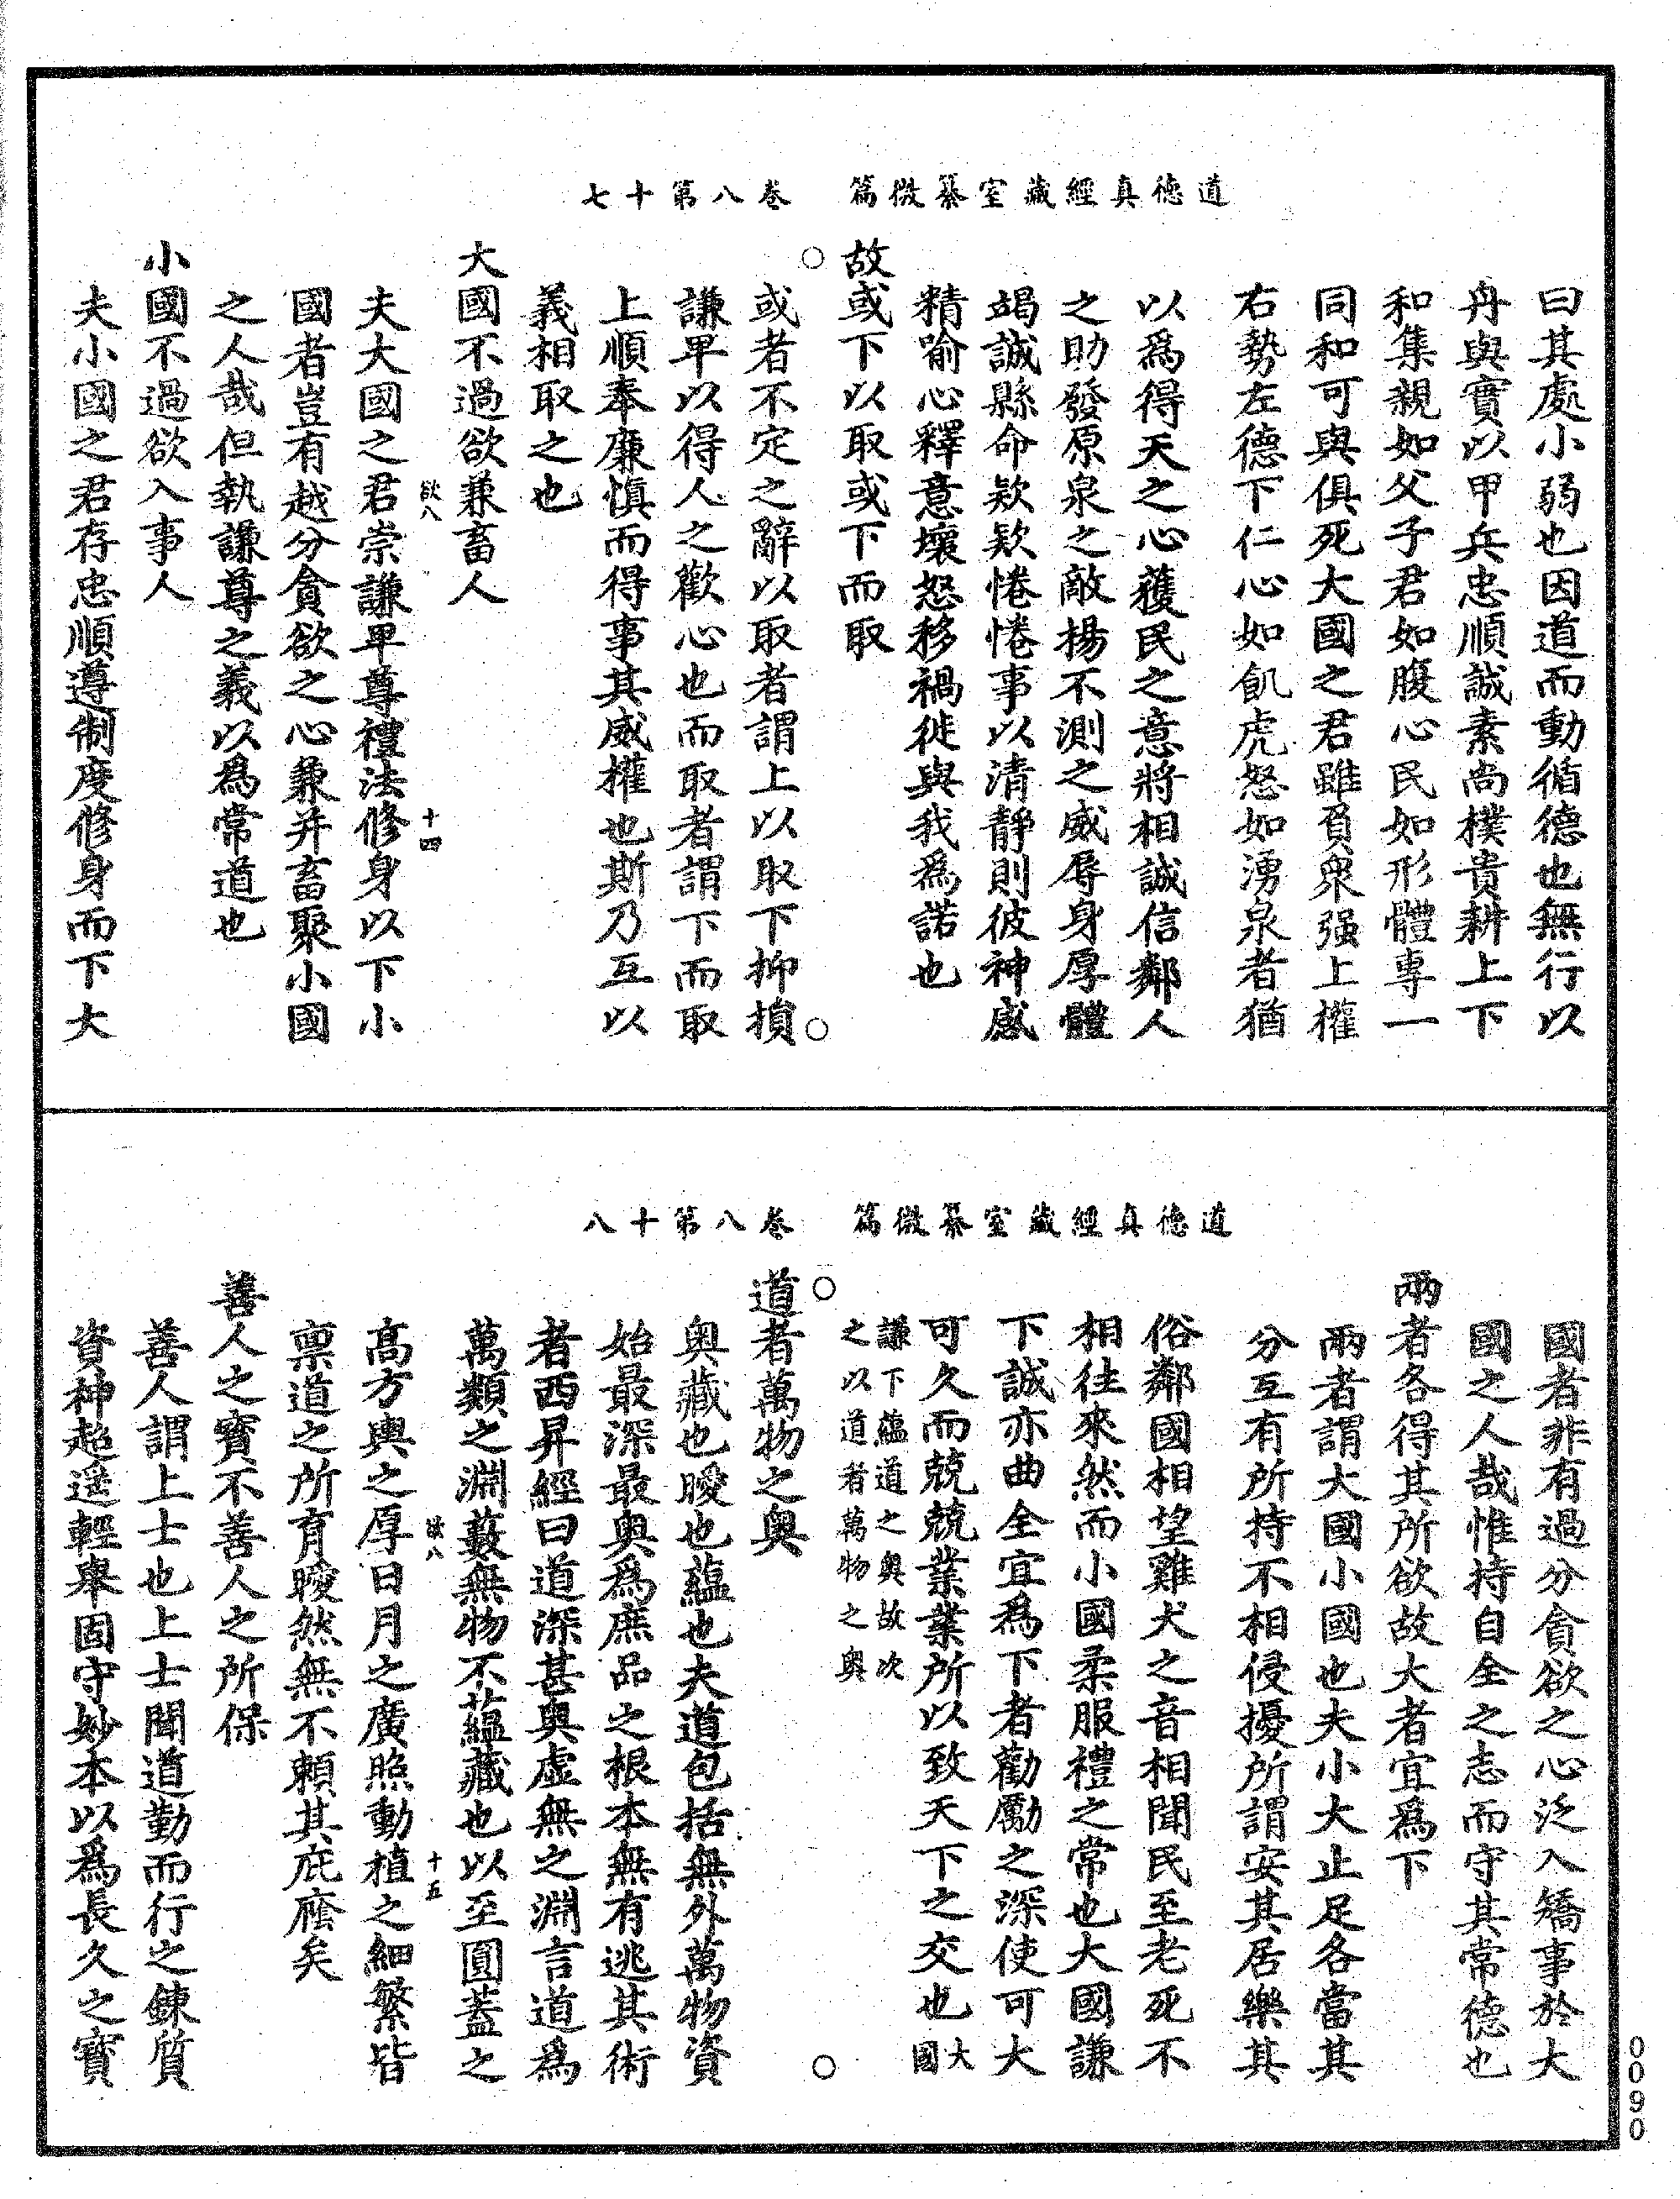 道德真經藏室纂微篇　卷八第十七
曰其處小弱也因道而動循德也無行以
舟與實以甲兵忠順誠素尚樸貴耕上下
和集親如父子君如腹心民如形體專一
同和可與俱死大國之君雖負衆强上權
右勢左德下仁心如飢虎怒如湧泉者猶
以爲得天之心獲民之意將相誠信鄰人
之助發原泉之敵揚不測之威辱身厚體
竭誠縣命欵欵惓惓事以清靜則彼神感
精喻心釋意壞怒移禍徙與我爲諾也
故或下以取或下而取
或者不定之辭以取者謂上以取下抑損
謙卑以得人之歡心也而取者謂下而取
上順奉廉慎而得事其威權也斯乃互以
義相取之也
大國不過欲兼畜人
欲八　十四
夫大國之君崇謙卑尊禮法修身以下小
國者豈有越分貪欲之心兼并畜聚小國
之人哉但執謙尊之義以爲常道也
小國不過欲入事人
夫小國之君存忠順遵制度修身而下大
道德真經藏室纂微篇　卷八第十八
國者非有過分貪欲之心泛入矯事於大
國之人哉惟持自全之志而守其常德也
兩者各得其所欲故大者宜爲下
兩者謂大國小國也夫小大止足各當其
分互有所持不相侵擾所謂安其居樂其
俗鄰國相望雞犬之音相聞民至老死不
相往來然而小國柔服禮之常也大國謙
下誠亦曲全宜爲下者勸勵之深使可大
可久而兢兢業業所以致天下之交也大國
謙下蘊道之奧故次
之以道者萬物之奧
道者萬物之奧
奧藏也曖也蘊也夫道包括無外萬物資
始最深最奧爲庶品之根本無有逃其術
者西昇經曰道深甚奧虛無之淵言道爲
萬類之淵藪無物不蘊藏也以至圓蓋之
欲八　十五
高方輿之厚日月之廣照動植之細繁皆
稟道之所育曖然無不賴其庇廕矣
善人之寶不善人之所保
善人謂上士也上士聞道勤而行之鍊質
資神超遥輕舉固守妙本以爲長久之寶
0090